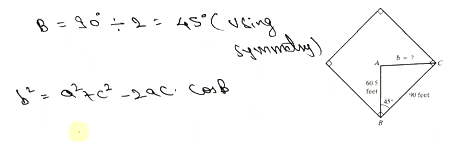 B = 90° ÷ 2 = 45° (Using
symmetry)
b² = a² + c² - 2ac. CosB
A
b = ?
C
60.5
feet
90 feet
45°
B